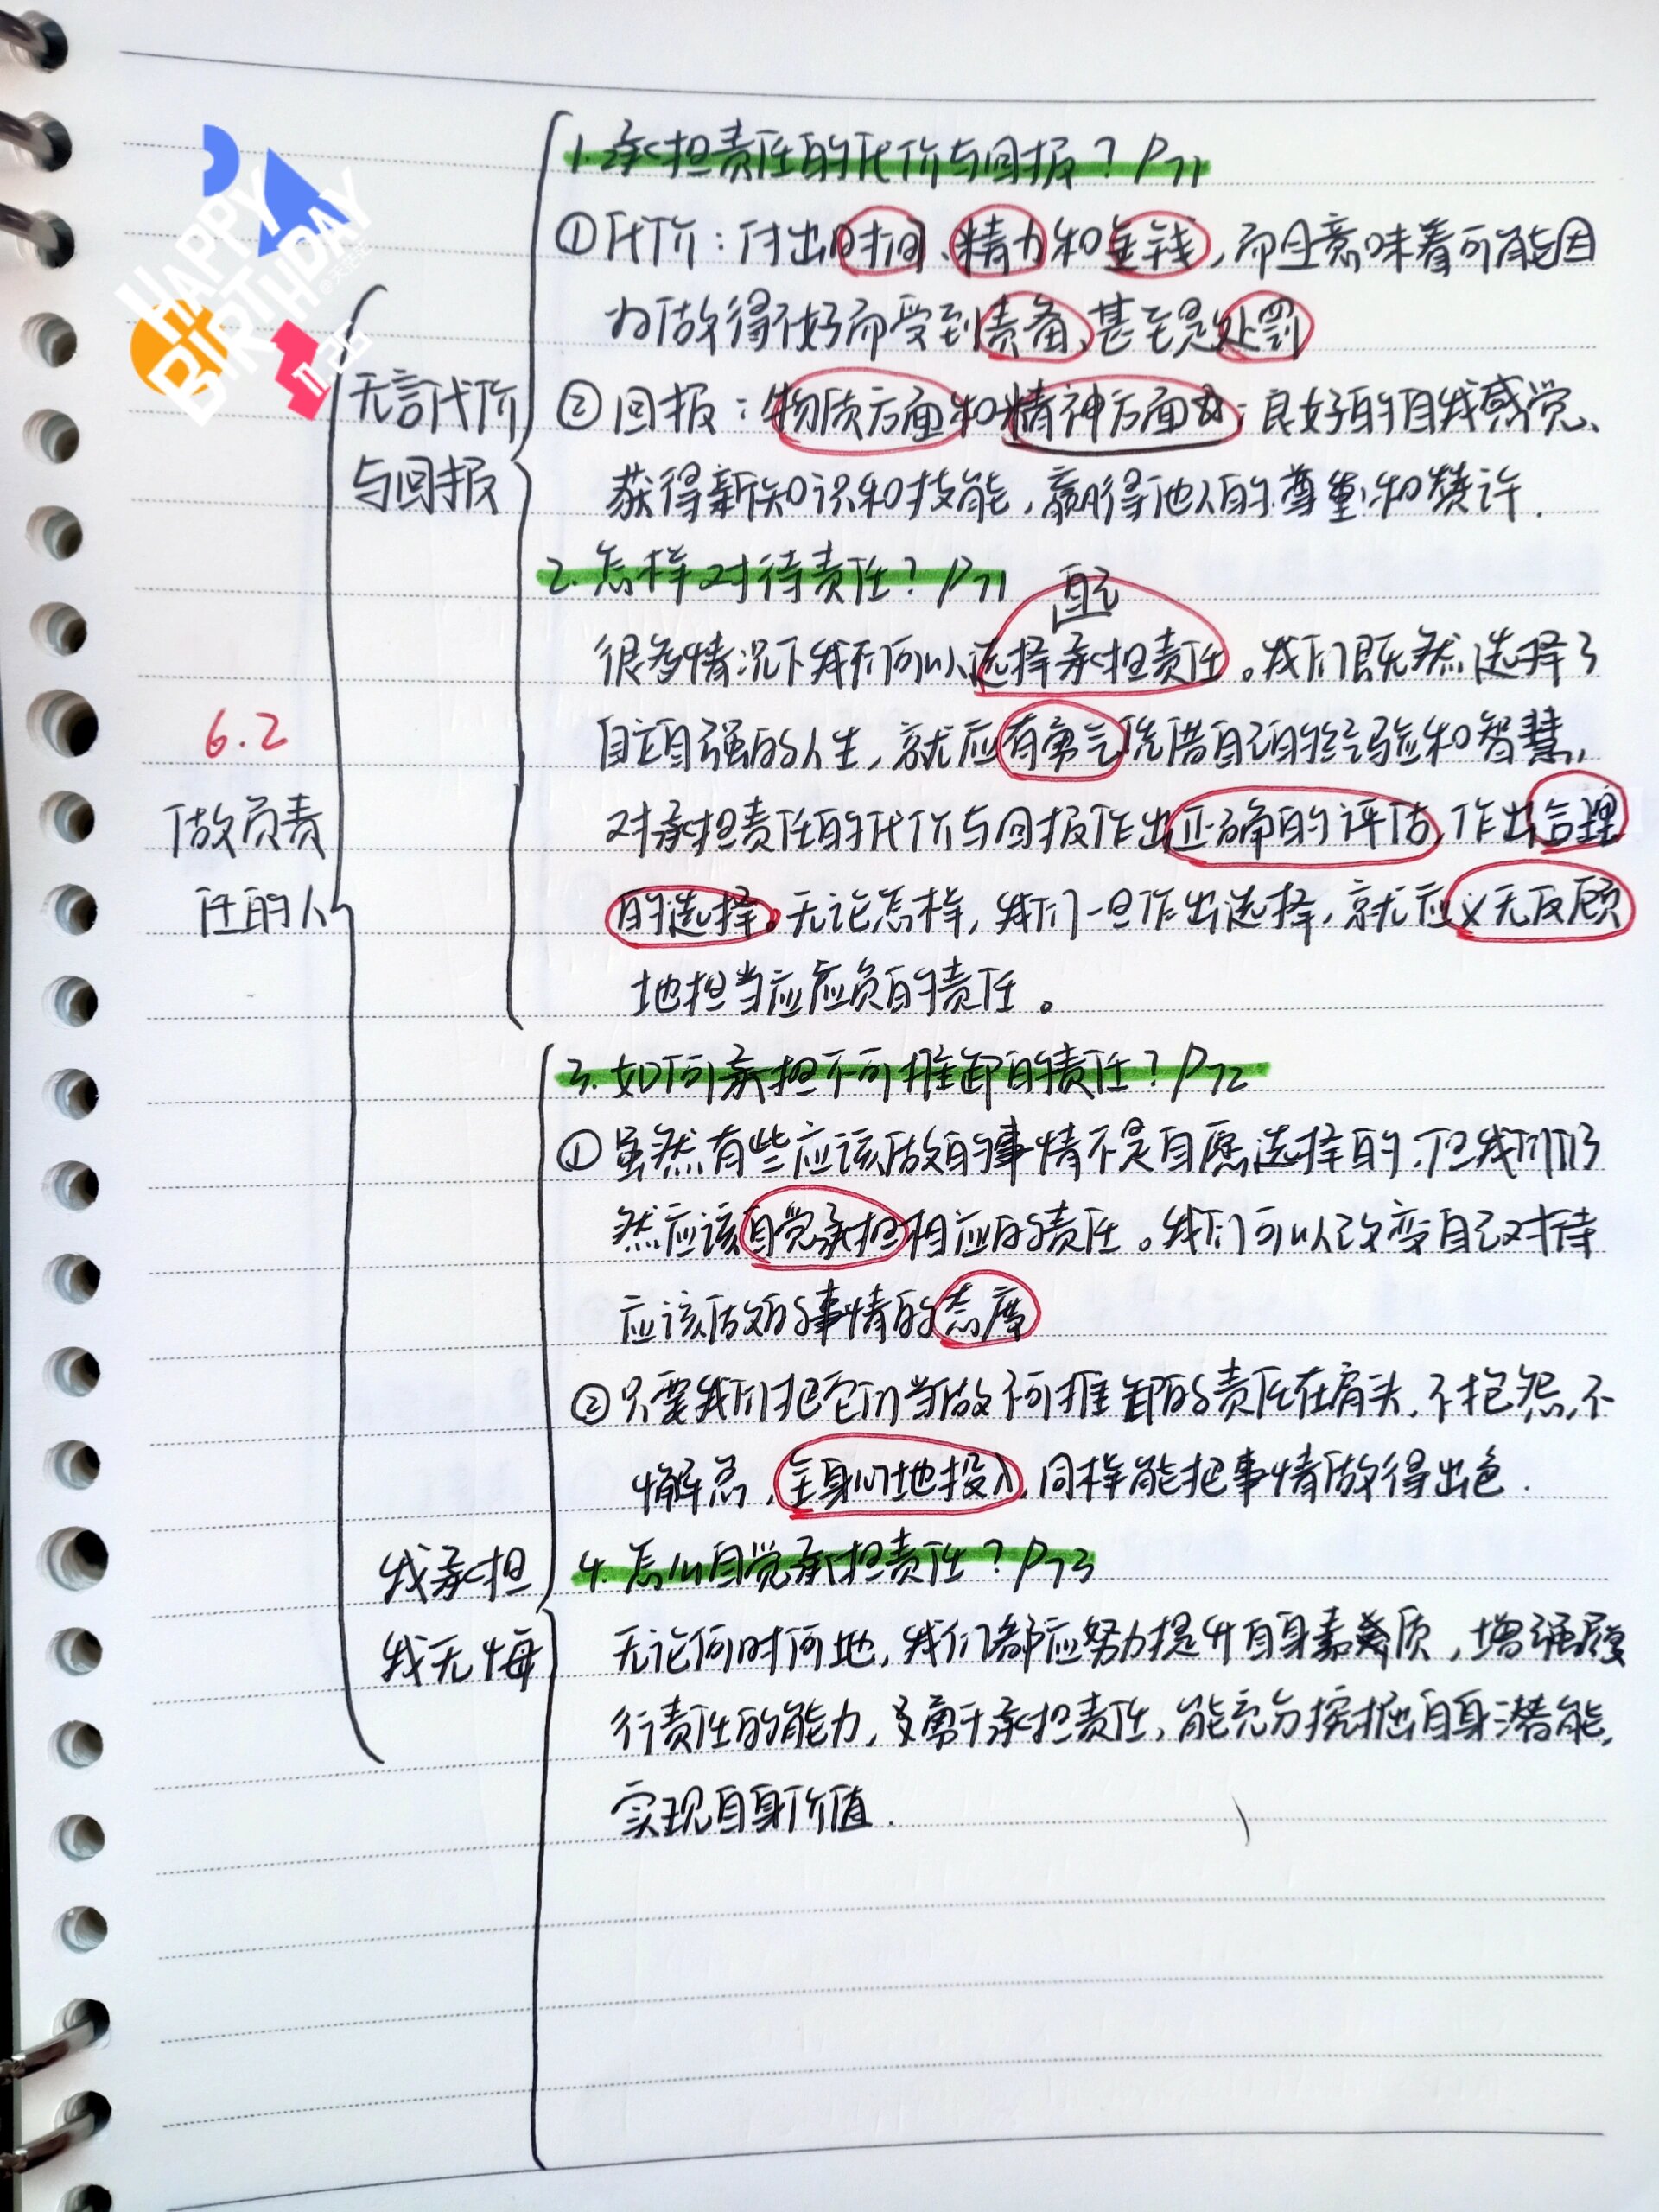 HAPPY
BIRTHDAY
11.26
6.2
做负责
任的人
无言代价
与回报
1.承担责任的代价与回报？P71
①代价：付出时间、精力和金钱，而且意味着可能因
为做得不好而受到责备、甚至是处罚
②回报：物质方面和精神方面：良好的自我感觉、
获得新知识和技能，赢得他人的尊重和赞许.
2.怎样对待责任？P71
自己
很多情况下我们可以选择承担责任。我们既然选择了
自立自强的人生，就应有勇气凭借自己的经验和智慧，
对承担责任的代价与回报作出正确的评估，作出合理
的选择。无论怎样，我们一旦作出选择，就应义无反顾
地担当应应负的责任。
3.如何承担不可推卸的责任？P72
①虽然有些应该做的事情不是自愿选择的，但我们仍
然应该自觉承担相应的责任。我们可以改变自己对待
应该做的事情的态度
②只要我们把它们当做不可推卸的责任在肩头，不抱怨，不
懈怠，全身心地投入，同样能把事情做得出色.
我承担
我无悔
4.怎么自觉承担责任？P73
无论何时何地，我们都应努力提升自身素质，增强履
行责任的能力，勇于承担责任，能充分挖掘自身潜能，
实现自身价值.